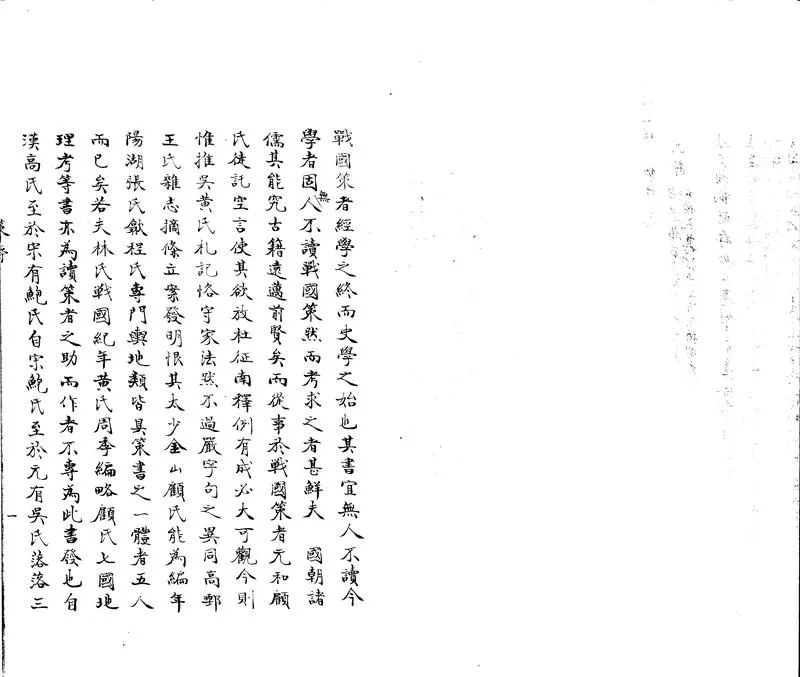 戰國策者經學之終而史學之始也其書宜無人不讀今
學者固無人不讀戰國策然而考求之者甚鮮夫　國朝諸
儒其能究古籍遠邁前賢矣而從事於戰國策者元和顧
氏徒託空言使其欲放杜征南釋例有成必大可觀今則
惟推吳黃氏札記恪守家法然不過嚴字句之異同高郵
王氏雜志摘條立案發明恨其太少金山顧氏能為編年
陽湖張氏歙程氏專門輿地類皆具策書之一體者五人
而已矣若夫林氏戰國紀年黃氏周季編略顧氏七國地
理考等書亦為讀策者之助而作者不專為此書發也自
漢高氏至於宋有鮑氏自宗鮑氏至於元有吳氏落落三
一